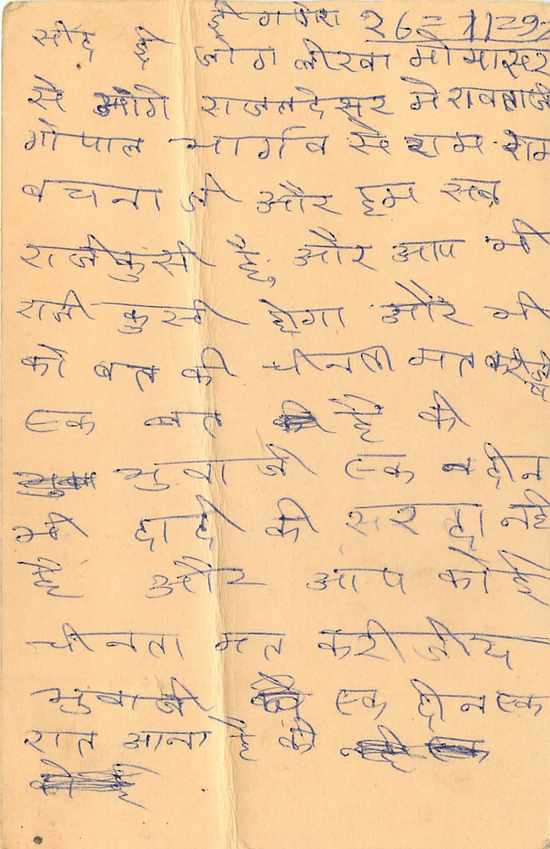 श्री गणेश 26=11=97
सीद्ध श्री जोग लीखी मोमासर
से आगे राजलदेसर मे रावताजी
गोपाल भार्गव से राम-राम
बचना जी और हम सब
राजीकुसी है, और आप भी
राजी कुसी होगा और भी
को बात की चीनता मत करीजो
एक बात है की
भुवा जी एक दीन
भी दादी की सरदा नही
है और आप कोई
चीनता मत करीजीय
भुवाजी एक दीन एक
रात आना है की